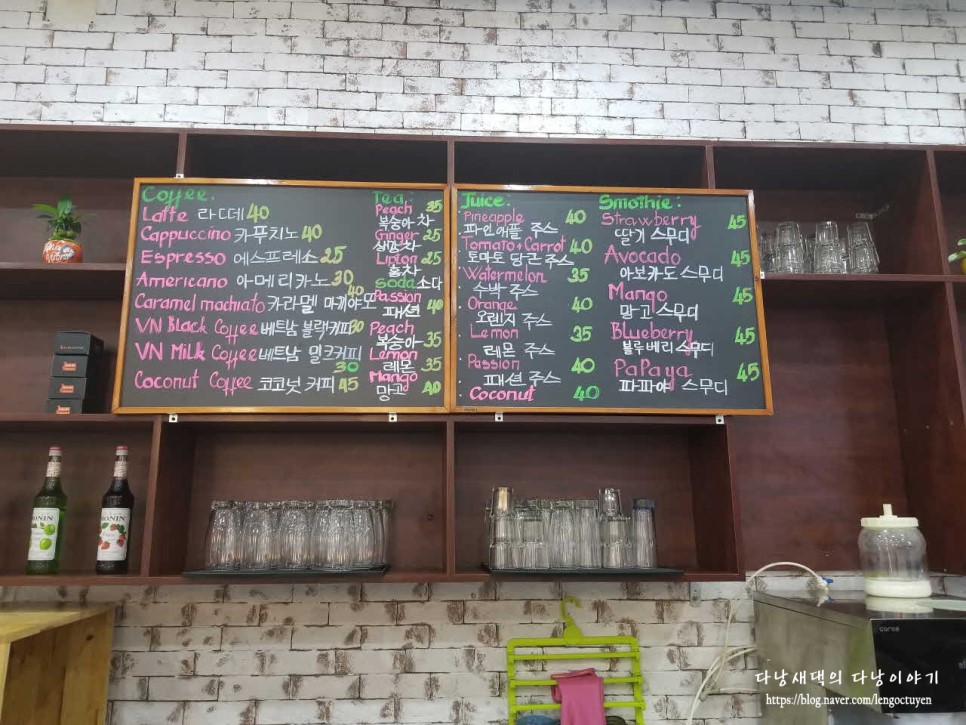 Coffee.
Latte 라떼 40
Cappuccino 카푸치노 40
Espresso 에스프레소 25
Americano 아메리카노 30
Caramel machiato 카라멜 마끼야또 40
VN Black Coffee 베트남 블랙커피 30
VN Milk Coffee 베트남 밀크커피
30
Coconut Coffee 코코넛 커피 45
Tea:
Peach 35
복숭아 차
Ginger 25
생강차
Lipton 25
홍차
Soda 소다
Passion 40
패션
Peach 35
복숭아
Lemon 35
레몬
Mango 40
망고
Juice:
Pineapple 40
파인애플 주스
Tomato+Carrot 40
토마토 당근 주스
Watermelon 35
수박 주스
Orange 40
오렌지 주스
Lemon 35
레몬 주스
Passion 40
패션 주스
Coconut 40
Smothie:
Strawberry 45
딸기 스무디
Avocado 45
아보카도 스무디
Mango 45
망고 스무디
Blueberry 45
블루베리 스무디
PaPaya 45
파파야 스무디
MONIN
MONIN
coros
다낭새댁의 다낭이야기
https://blog.naver.com/lengoctuyen